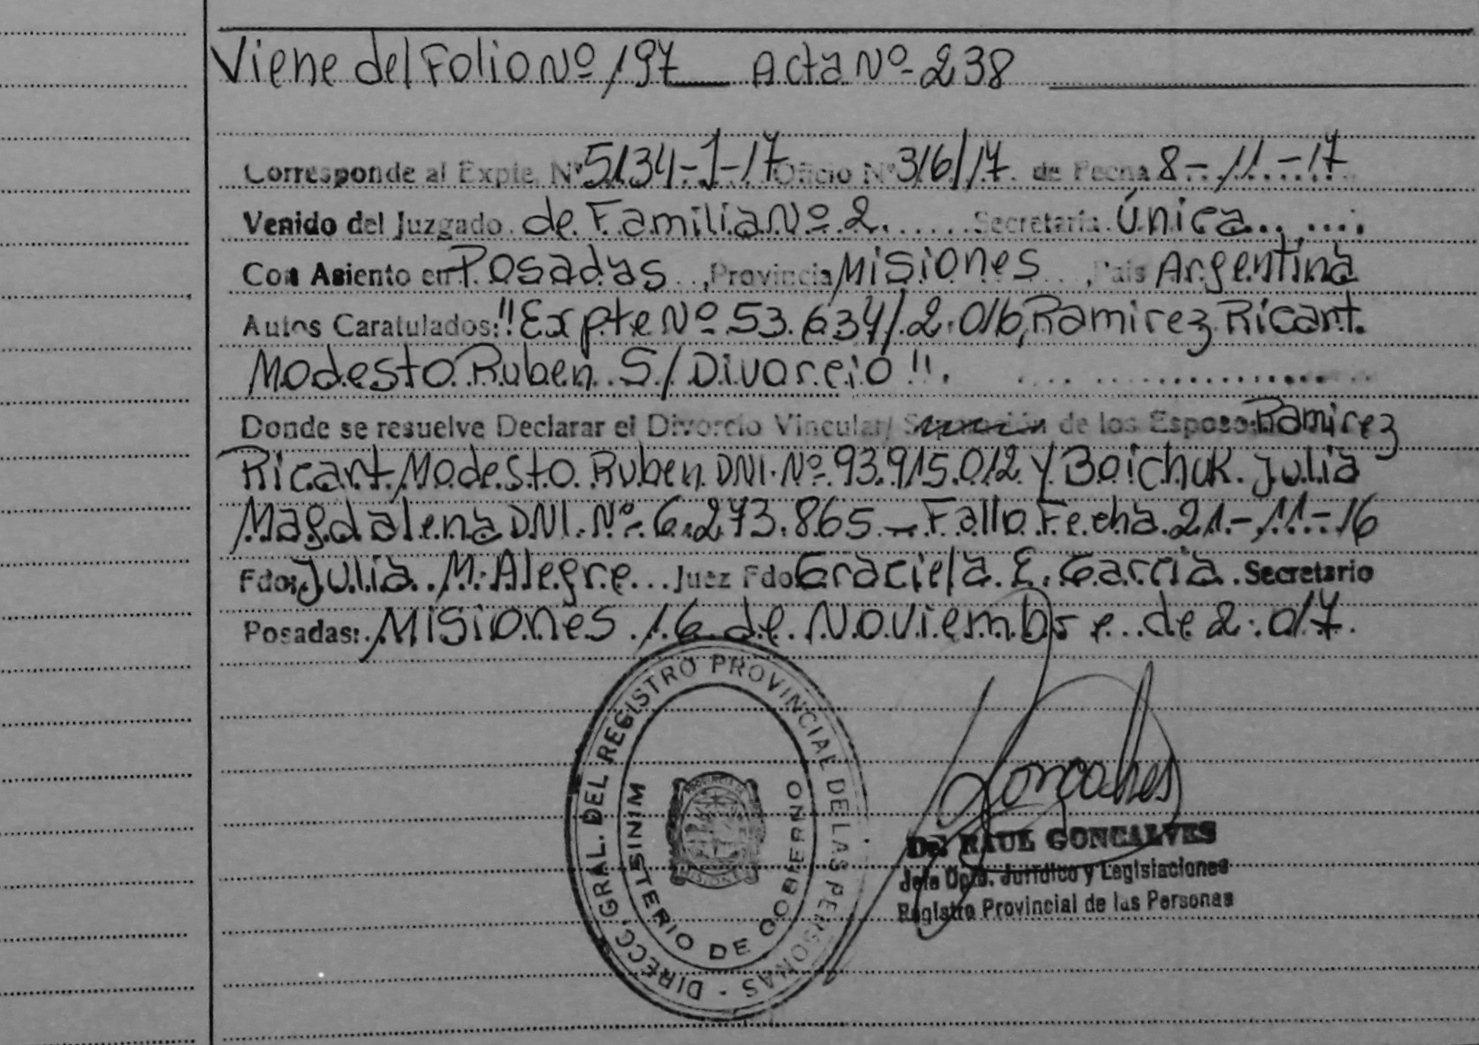 Viene del Folio Nº 197 Acta Nº 238
Corresponde al Expte. Nº 5134-J-17 Oficio Nº 316/17 de Fecha 8-11-17
Venido del Juzgado de Familia Nº 2 Secretaría Única
Con Asiento en Posadas, Provincia Misiones, País Argentina
Autos Caratulados: "Expte Nº 53.634/2.016, Ramirez Ricart
Modesto Ruben S/Divorcio".
Donde se resuelve Declarar el Divorcio Vincular/ Separación de los Esposo: Ramirez
Ricart Modesto Ruben DNI. Nº 93.915.012 y Boichuk Julia
Magdalena DNI. Nº 6.273.865 - Fallo Fecha 21-11-16
Fdo: Julia M. Alegre Juez Fdo Graciela E. Garcia Secretario
Posadas: Misiones 16 de Noviembre de 2.017.
DIRECC. GRAL. DEL REGISTRO PROVINCIAL DE LAS PERSONAS -
MINISTERIO DE GOBIERNO
Goncalves
Dr. RAUL GONCALVES
Jefe Dpto. Jurídico y Legislaciones
Registro Provincial de las Personas